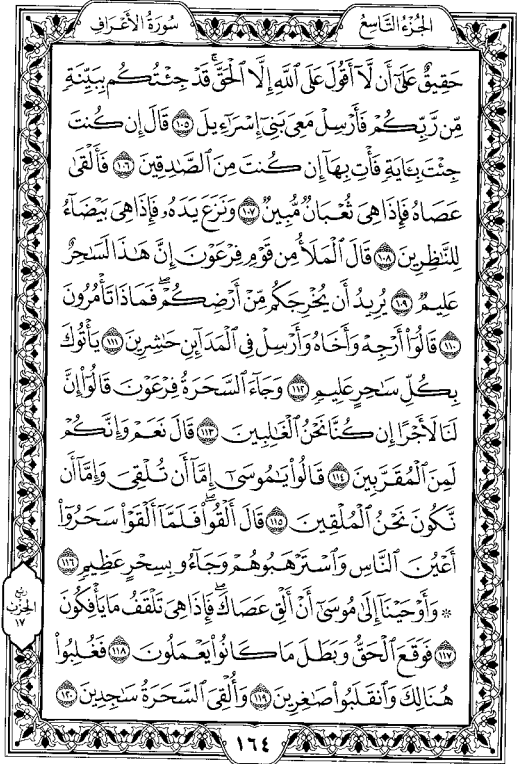 سُورَةُ الْأَعْرَافِ
الجُزْءُ التَّاسِعُ
حَقِيقٌ عَلَىٰٓ أَن لَّآ أَقُولَ عَلَى ٱللَّهِ إِلَّا ٱلْحَقَّۚ قَدْ جِئْتُكُم بِبَيِّنَةٍ
مِّن رَّبِّكُمْ فَأَرْسِلْ مَعِىَ بَنِىٓ إِسْرَٰٓءِيلَ ١٠٥ قَالَ إِن كُنتَ
جِئْتَ بِـَٔايَةٍ فَأْتِ بِهَآ إِن كُنتَ مِنَ ٱلصَّٰدِقِينَ ١٠٦ فَأَلْقَىٰ
عَصَاهُ فَإِذَا هِىَ ثُعْبَانٌ مُّبِينٌ ١٠٧ وَنَزَعَ يَدَهُۥ فَإِذَا هِىَ بَيْضَآءُ
لِلنَّٰظِرِينَ ١٠٨ قَالَ ٱلْمَلَأُ مِن قَوْمِ فِرْعَوْنَ إِنَّ هَٰذَا لَسَٰحِرٌ
عَلِيمٌ ١٠٩ يُرِيدُ أَن يُخْرِجَكُم مِّنْ أَرْضِكُمْۖ فَمَاذَا تَأْمُرُونَ
١١٠ قَالُوٓا۟ أَرْجِهْ وَأَخَاهُ وَأَرْسِلْ فِى ٱلْمَدَآئِنِ حَٰشِرِينَ ١١١ يَأْتُوكَ
بِكُلِّ سَٰحِرٍ عَلِيمٍ ١١٢ وَجَآءَ ٱلسَّحَرَةُ فِرْعَوْنَ قَالُوٓا۟ إِنَّ
لَنَا لَأَجْرًا إِن كُنَّا نَحْنُ ٱلْغَٰلِبِينَ ١١٣ قَالَ نَعَمْ وَإِنَّكُمْ
لَمِنَ ٱلْمُقَرَّبِينَ ١١٤ قَالُوا۟ يَٰمُوسَىٰٓ إِمَّآ أَن تُلْقِىَ وَإِمَّآ أَن
نَّكُونَ نَحْنُ ٱلْمُلْقِينَ ١١٥ قَالَ أَلْقُوا۟ۖ فَلَمَّآ أَلْقَوْا۟ سَحَرُوٓا۟
أَعْيُنَ ٱلنَّاسِ وَٱسْتَرْهَبُوهُمْ وَجَآءُو بِسِحْرٍ عَظِيمٍ ١١٦
۞ وَأَوْحَيْنَآ إِلَىٰ مُوسَىٰٓ أَنْ أَلْقِ عَصَاكَۖ فَإِذَا هِىَ تَلْقَفُ مَا يَأْفِكُونَ
١١٧ فَوَقَعَ ٱلْحَقُّ وَبَطَلَ مَا كَانُوا۟ يَعْمَلُونَ ١١٨ فَغُلِبُوا۟
هُنَالِكَ وَٱنقَلَبُوا۟ صَٰغِرِينَ ١١٩ وَأُلْقِىَ ٱلسَّحَرَةُ سَٰجِدِينَ ١٢٠
ربع
الحزب
١٧
١٦٤